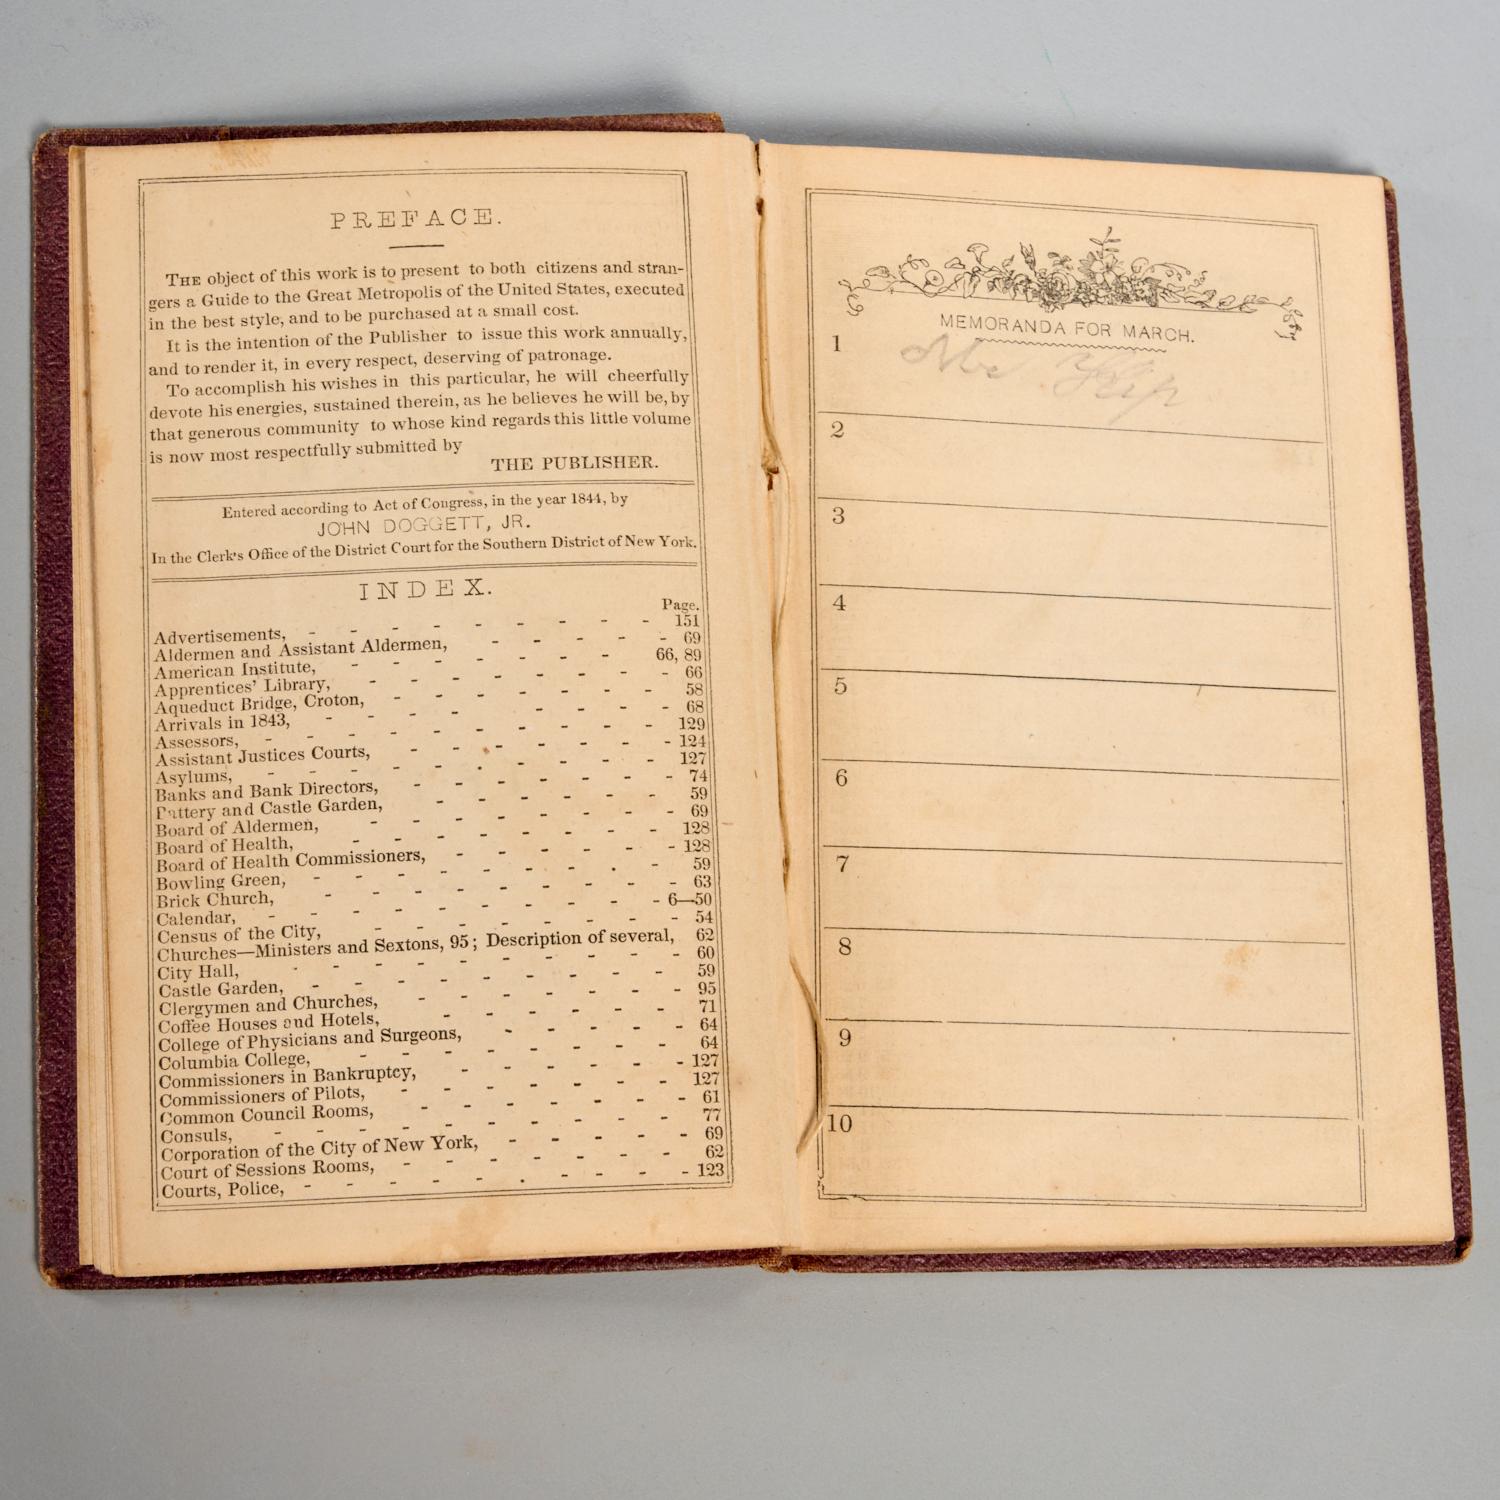 PREFACE.
THE object of this work is to present to both citizens and stran-
gers a Guide to the Great Metropolis of the United States, executed
in the best style, and to be purchased at a small cost.
It is the intention of the Publisher to issue this work annually,
and to render it, in every respect, deserving of patronage.
To accomplish his wishes in this particular, he will cheerfully
devote his energies, sustained therein, as he believes he will be, by
that generous community to whose kind regards this little volume
is now most respectfully submitted by
THE PUBLISHER.
Entered according to Act of Congress, in the year 1844, by
JOHN DOGGETT, JR.
In the Clerk's Office of the District Court for the Southern District of New York.
INDEX.
Page.
Advertisements, - - - - - - - - - 151
Aldermen and Assistant Aldermen, - - - - - 69
American Institute, - - - - - - - 66, 89
Apprentices' Library, - - - - - - - - 66
Aqueduct Bridge, Croton, - - - - - - - 58
Arrivals in 1843, - - - - - - - - 68
Assessors, - - - - - - - - - 129
Assistant Justices Courts, - - - - - - - 124
Asylums, - - - - - - - - - 127
Banks and Bank Directors, - - - - - - - 74
Battery and Castle Garden, - - - - - - 59
Board of Aldermen, - - - - - - - - 69
Board of Health, - - - - - - - - 128
Board of Health Commissioners, - - - - - - 128
Bowling Green, - - - - - - - - 59
Brick Church, - - - - - - - - - 63
Calendar, - - - - - - - - - 6—50
Census of the City, - - - - - - - - 54
Churches—Ministers and Sextons, 95; Description of several, 62
City Hall, - - - - - - - - - 60
Castle Garden, - - - - - - - - 59
Clergymen and Churches, - - - - - - - 95
Coffee Houses and Hotels, - - - - - - 71
College of Physicians and Surgeons, - - - - - 64
Columbia College, - - - - - - - - 64
Commissioners in Bankruptcy, - - - - - - 127
Commissioners of Pilots, - - - - - - - 127
Common Council Rooms, - - - - - - - 61
Consuls, - - - - - - - - - 77
Corporation of the City of New York, - - - - - 69
Court of Sessions Rooms, - - - - - - - 62
Courts, Police, - - - - - - - - - 123
MEMORANDA FOR MARCH.
1
2
3
4
5
6
7
8
9
10